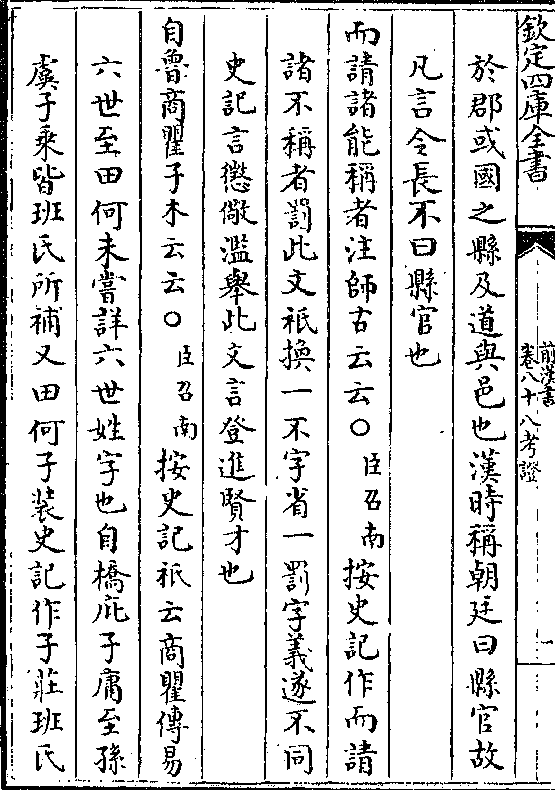 欽定四庫全書
前漢書
卷八十八考證
一
於郡或國之縣及道與邑也漢時稱朝廷曰縣官故
凡言令長不曰縣官也
而請諸能稱者注師古云云○臣召南按史記作而請
諸不稱者罰此文祇換一不字省一罰字義遂不同
史記言懲儆濫舉此文言登進賢才也
自魯商瞿子木云云○臣召南按史記祇云商瞿傳易
六世至田何未嘗詳六世姓字也自橋庇子庸至孫
虞子乘皆班氏所補又田何子裝史記作子莊班氏